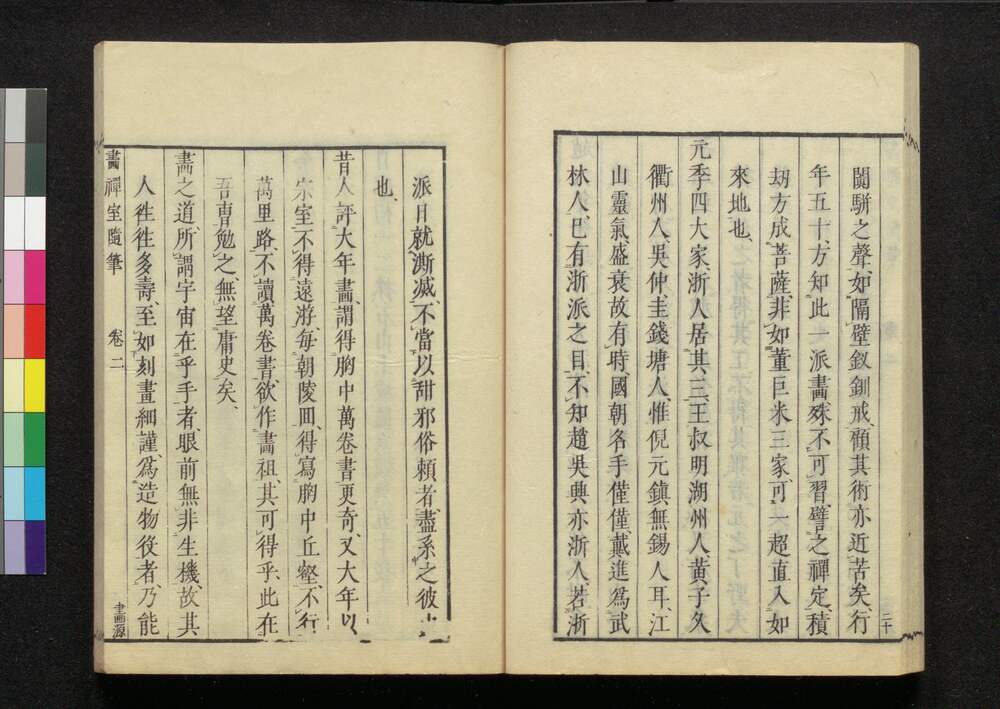 闐駢之聲、如隔壁釵釧戒、顧其術亦近苦矣、行
年五十、方知此一派畫殊不可習、譬之禪定、積
劫方成菩薩、非如董巨米三家、可一超直入如
來地也、
元季四大家、浙人居其三、王叔明湖州人、黃子久
衢州人、吳仲圭錢塘人、惟倪元鎮無錫人耳、江
山靈氣、盛衰故有時、國朝名手僅僅、戴進爲武
林人、巳有浙派之目、不知趙吳興亦浙人、若浙
二十
派日就澌滅、不當以甜邪俗賴者、盡系之彼中
也、
昔人評大年畫、謂得胸中萬卷書更奇、又大年以
宗室、不得遠游、每朝陵回、得寫胸中丘壑、不行
萬里路、不讀萬卷書、欲作畵祖、其可得乎、此在
吾曹勉之、無望庸史矣、
畵之道、所謂宇宙在乎手者、眼前無非生機、故其
人徃徃多壽、至如刻畫細謹、爲造物役者、乃能
畵禪室隨筆 卷二 畫源